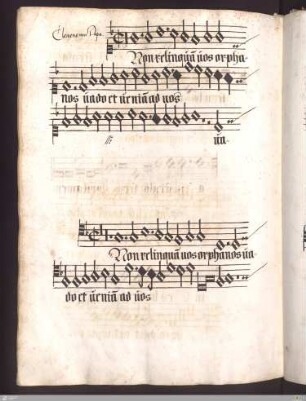 Clemens non Papa
Non relinquā vos orpha-
nos vado et veniā ad vos
ij
va.
Non relinquā vos orphanos va
do et veniā ad vos